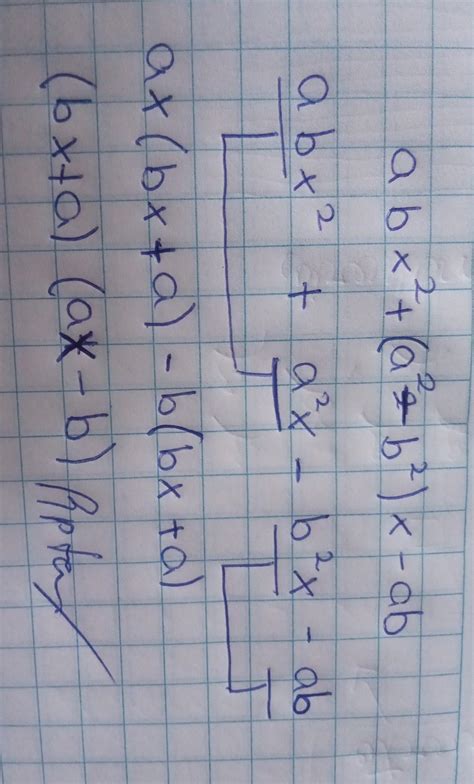 abx² + (a² - b²)x - ab
abx² + a²x - b²x - ab
ax(bx + a) - b(bx + a)
(bx + a) (ax - b) Rpta